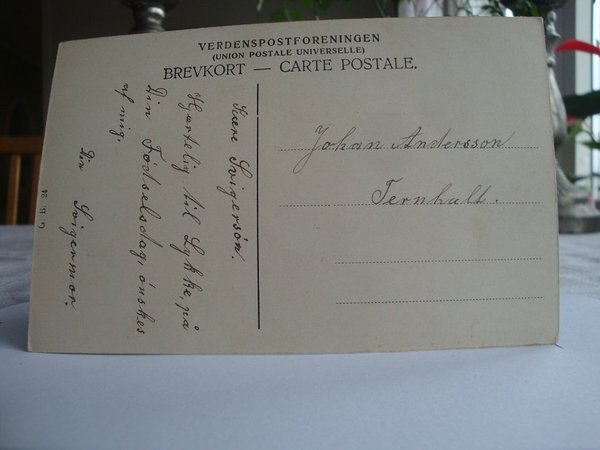 VERDENSPOSTFORENINGEN
(UNION POSTALE UNIVERSELLE)
BREVKORT — CARTE POSTALE.
Kære Svigersön.
Hjærtelig til Lykke, på
Din Födselsdag, önskes
af mig.
Din Svigermor.
Johan Andersson
Ternhult.